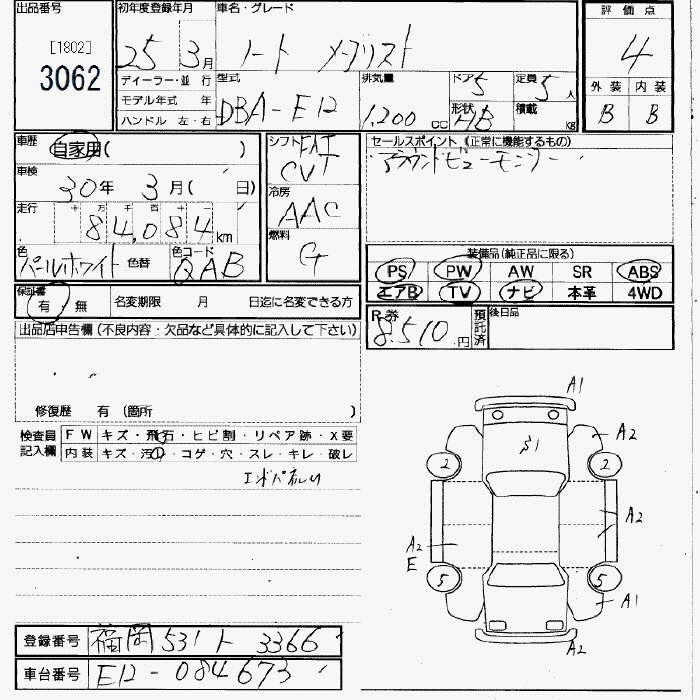 出品番号
[1802]
3062
初年度登録年月
25 3月
ディーラー・並 行
モデル年式 年
ハンドル 左・右
車名・グレード
ノート メダリスト
型式
DBA-E12
排気量
1,200 cc
ドア
5
形状
HB
定員
5人
積載
kg
評 価 点
4
外 装 内 装
B B
車歴
自家用( )
車検
30年 3月( 日)
走行
十万 万 千 百 十 一
84,084 km
色
パールホワイト 色替
色コード
QAB
シフト
FAT
CVT
冷房
AAC
燃料
G
セールスポイント (正常に機能するもの)
アラウンドビューモニター
装備品(純正品に限る)
PS PW AW SR ABS
エアB TV ナビ 本革 4WD
保証書
有 無
名変期限 月 日迄に名変できる方
R 券
8,510.円
預託済
後日品
出品店申告欄 (不良内容・欠品など具体的に記入して下さい)
修復歴 有 (箇所 )
検査員
記入欄
F W キズ・飛石・ヒビ割・リペア跡・X要
内 装 キズ・汚れ・コゲ・穴・スレ・キレ・破レ
A1
A2
S1
2 2
A2
A2
E
5 5
A1
A2
登録番号 福岡 531 ト 3366
車台番号 E12-084673